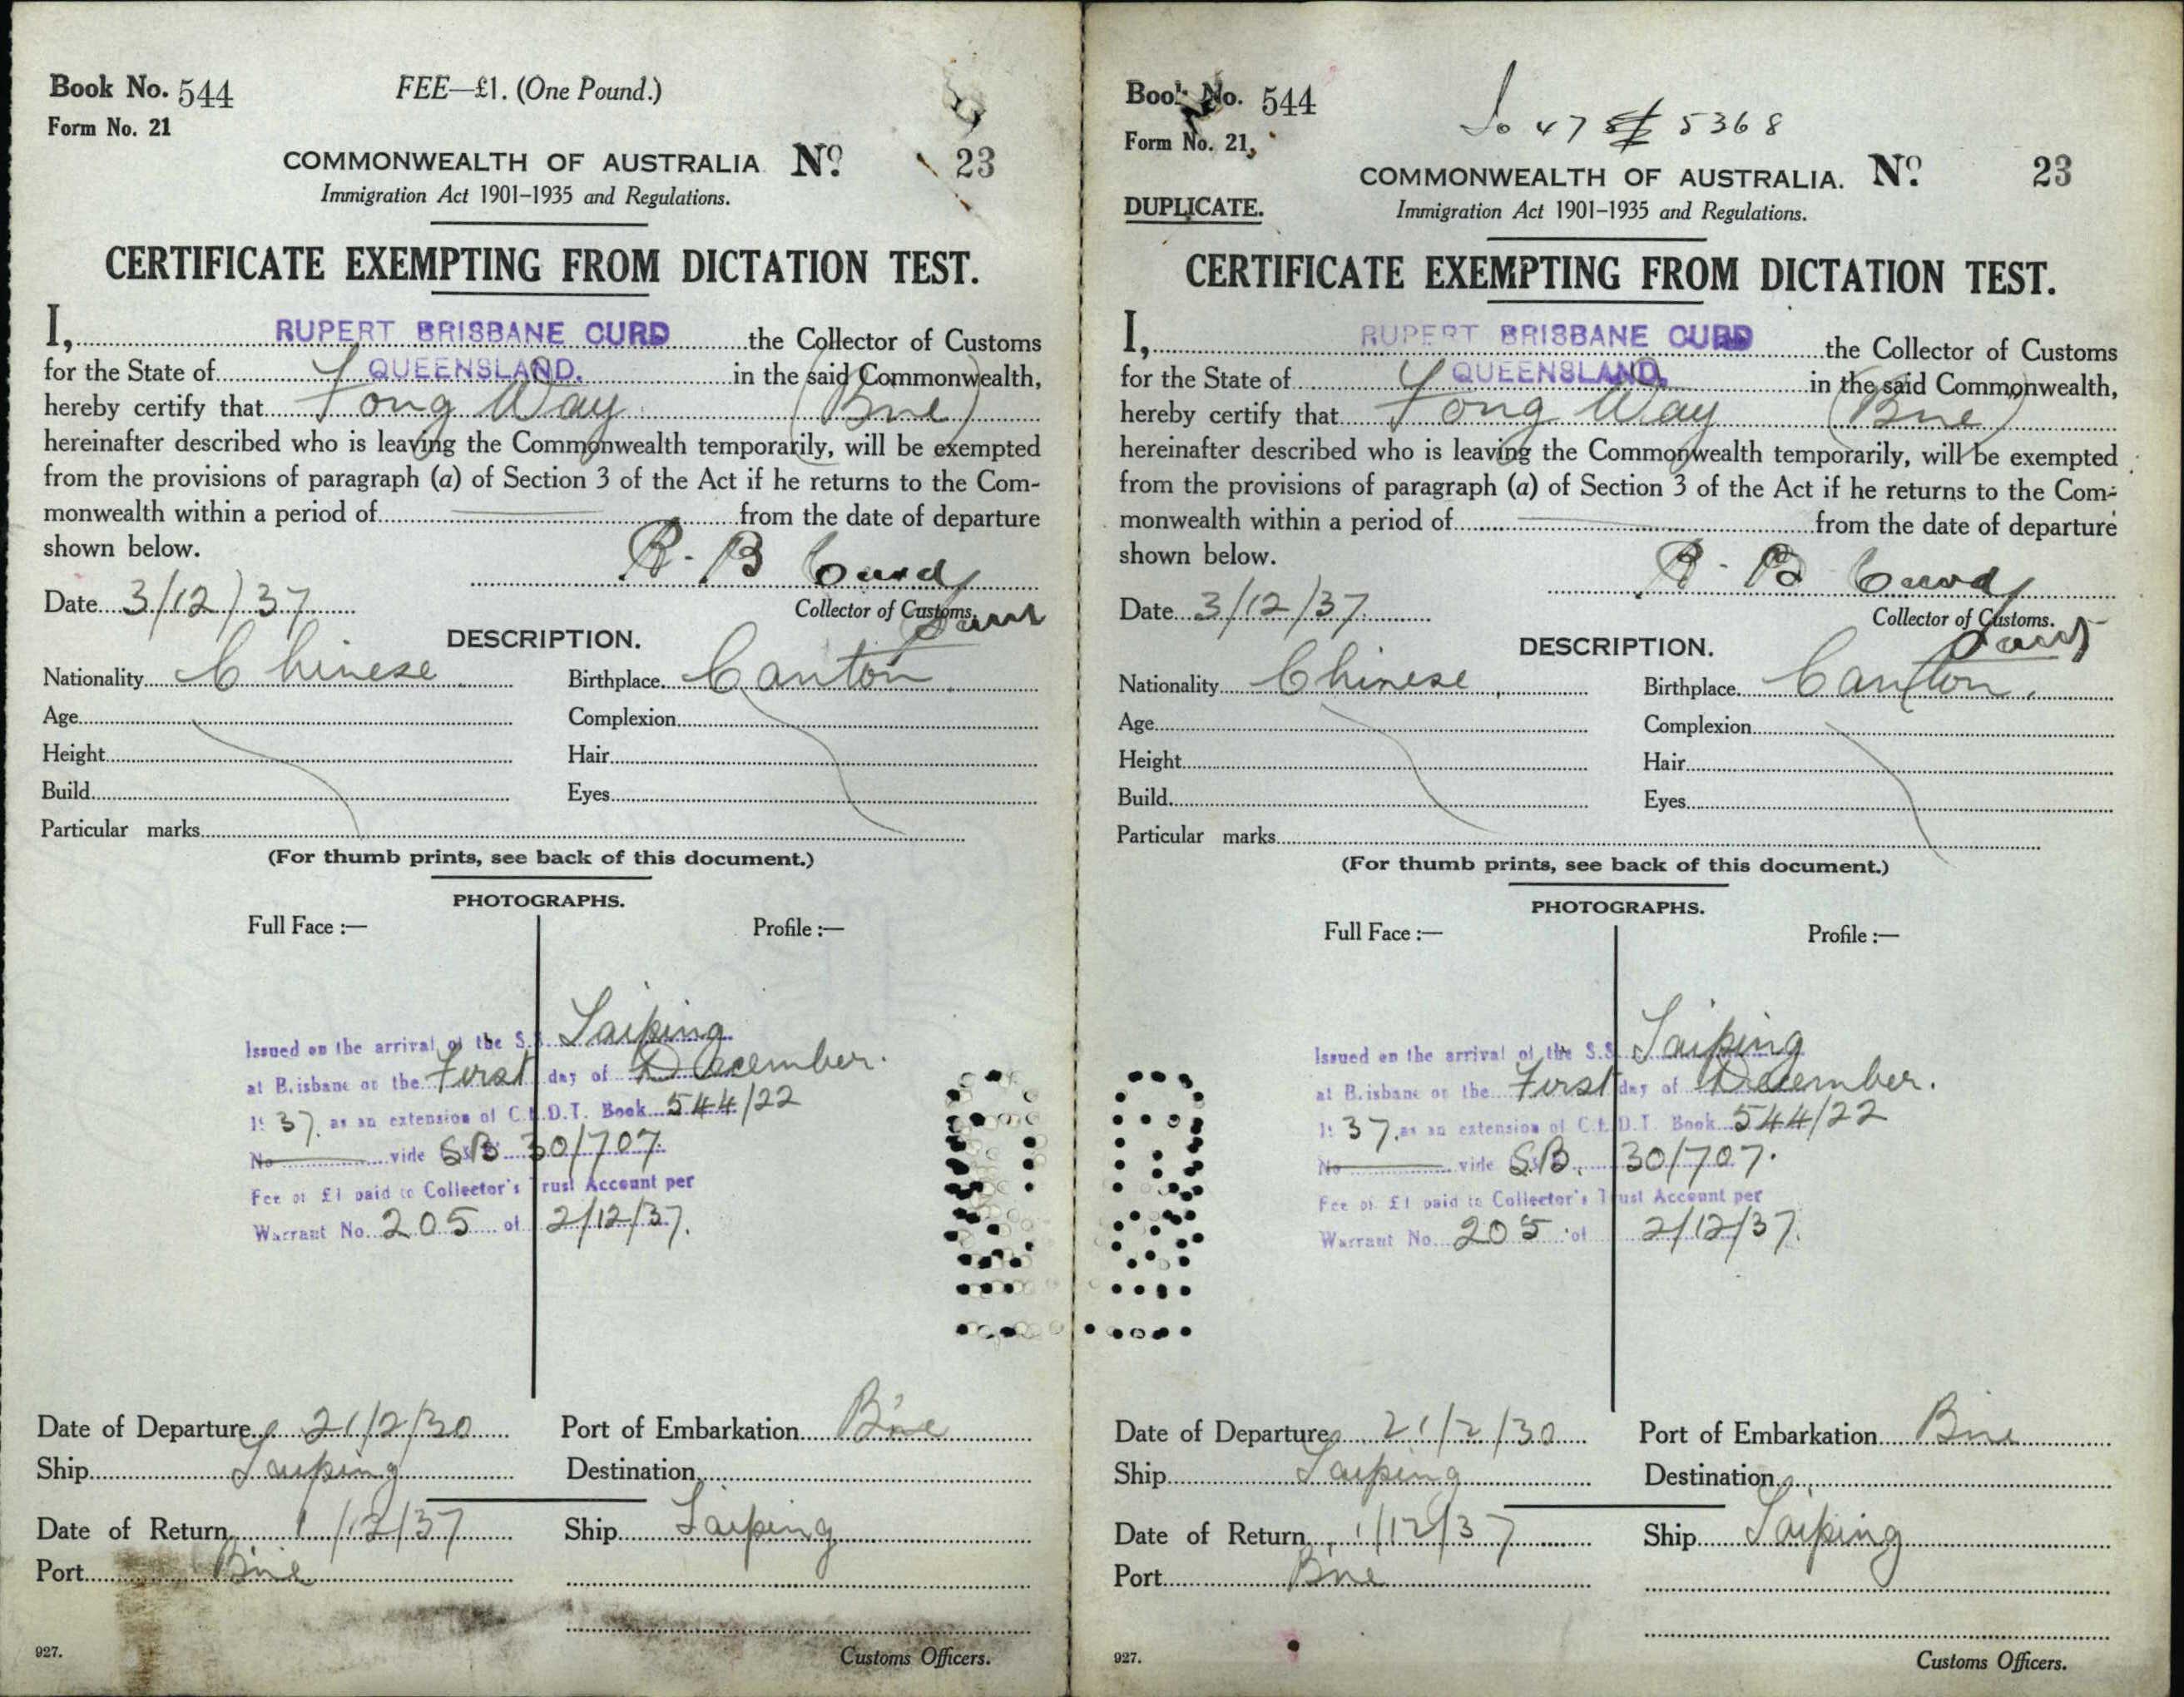 Book No. 544
FEE—£1. (One Pound.)
Form No. 21
COMMONWEALTH OF AUSTRALIA No. 23
Immigration Act 1901-1935 and Regulations.
CERTIFICATE EXEMPTING FROM DICTATION TEST.
I, RUPERT BRISBANE CURD the Collector of Customs
for the State of QUEENSLAND. in the said Commonwealth,
hereby certify that Fong Way (Bne)
hereinafter described who is leaving the Commonwealth temporarily, will be exempted
from the provisions of paragraph (a) of Section 3 of the Act if he returns to the Com-
monwealth within a period of from the date of departure
shown below.
R. B Curd
Date 3/12/37
Collector of Customs.
DESCRIPTION.
Nationality Chinese Birthplace Canton
Age Complexion
Height Hair
Build Eyes
Particular marks
(For thumb prints, see back of this document.)
PHOTOGRAPHS.
Full Face :— Profile :—
Issued on the arrival of the S.S. Taiping
at Brisbane on the First day of December.
1937. as an extension of C.E.D.T. Book 544/22
No vide S.B. 30/707.
Fee of £1 paid to Collector's Trust Account per
Warrant No. 205 of 2/12/37.
Date of Departure 21/2/30 Port of Embarkation B'ne
Ship Taiping Destination
Date of Return 1/12/37 Ship Taiping
Port B'ne
927.
Customs Officers.
Book No. 544
47 5368
Form No. 21,
COMMONWEALTH OF AUSTRALIA. No. 23
DUPLICATE.
Immigration Act 1901-1935 and Regulations.
CERTIFICATE EXEMPTING FROM DICTATION TEST.
I, RUPERT BRISBANE CURD the Collector of Customs
for the State of QUEENSLAND. in the said Commonwealth,
hereby certify that Fong Way (Bne)
hereinafter described who is leaving the Commonwealth temporarily, will be exempted
from the provisions of paragraph (a) of Section 3 of the Act if he returns to the Com-
monwealth within a period of from the date of departure
shown below.
R. B Curd
Date 3/12/37.
Collector of Customs.
DESCRIPTION.
Nationality Chinese Birthplace Canton.
Age Complexion
Height Hair
Build Eyes
Particular marks
(For thumb prints, see back of this document.)
PHOTOGRAPHS.
Full Face :— Profile :—
Issued on the arrival of the S.S. Taiping
at Brisbane on the First day of December.
1937. as an extension of C.E.D.T. Book 544/22
No vide S.B. 30/707.
Fee of £1 paid to Collector's Trust Account per
Warrant No. 205 of 2/12/37.
Date of Departure 21/2/30 Port of Embarkation Bne
Ship Taiping Destination
Date of Return 1/12/37 Ship Taiping
Port Bne
927.
Customs Officers.